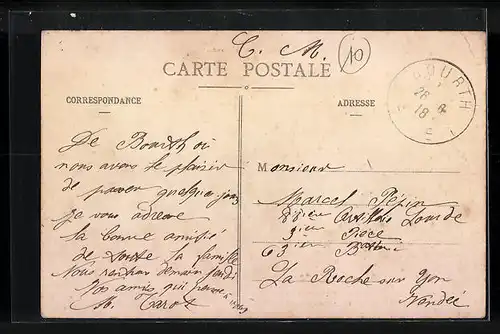 C. M.
10
CARTE POSTALE
CORRESPONDANCE
ADRESSE
BOURTH
26
18
De Bourth où
nous avons le plaisir
de passer quelques jours
je vous adresse
la bonne amitié
de toute la famille
Nous rendrons demain
Vos amis qui
M.
Monsieur
Marcel Pépin
Artillerie Lourde
Pièce
63
La Roche sur Yon
Vendée